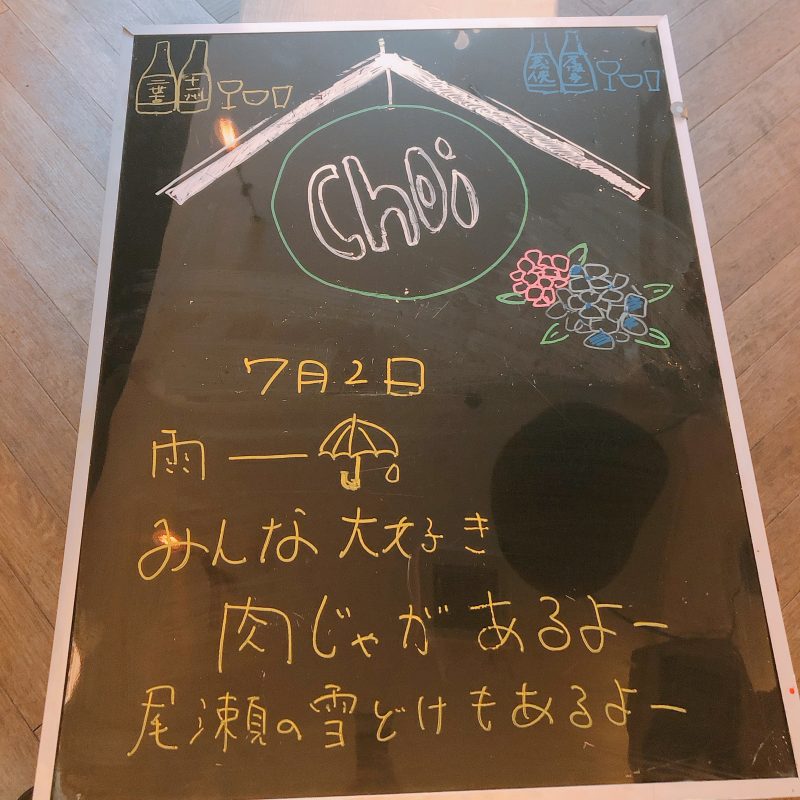 十一州
Choi
7月2日
雨ー
みんな大好き
肉じゃがあるよー
尾瀬の雪どけもあるよー